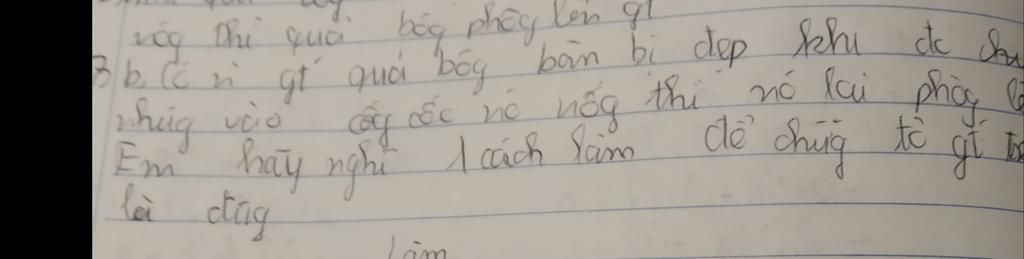 nóg thì quả bóg phồg lên gt
3 b. (có n gt quả bóg bàn bị dẹp khi đc
nhúg vào cốc nc nóg thì nó lại phồg
Em hãy nghĩ 1 cách làm để chứg tỏ gt
là đúg
Làm